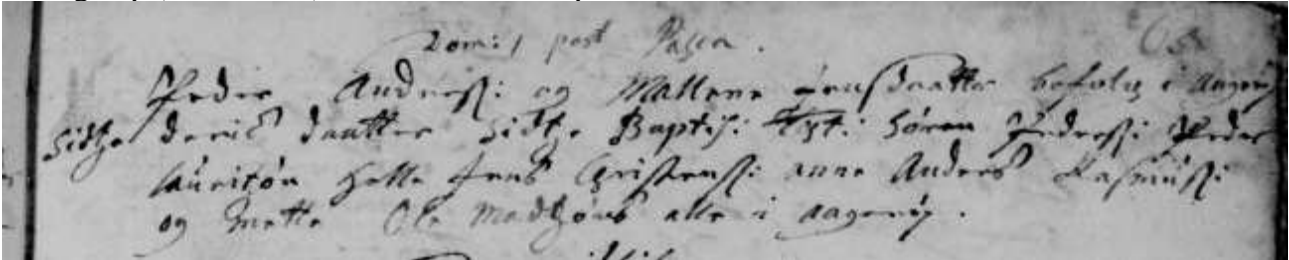 Dom: 1 post Pasca.
Peder Anderss: og Mallene Jensdaatter boefolig i
Sidtze deris daatter Sidtze Baptis: Test: Sören Pederss: Peder
Lauritzön Hette Jens Christenss: anne Anders Rasmuss:
og Mette Ole Madtzöns alle i aagerup.